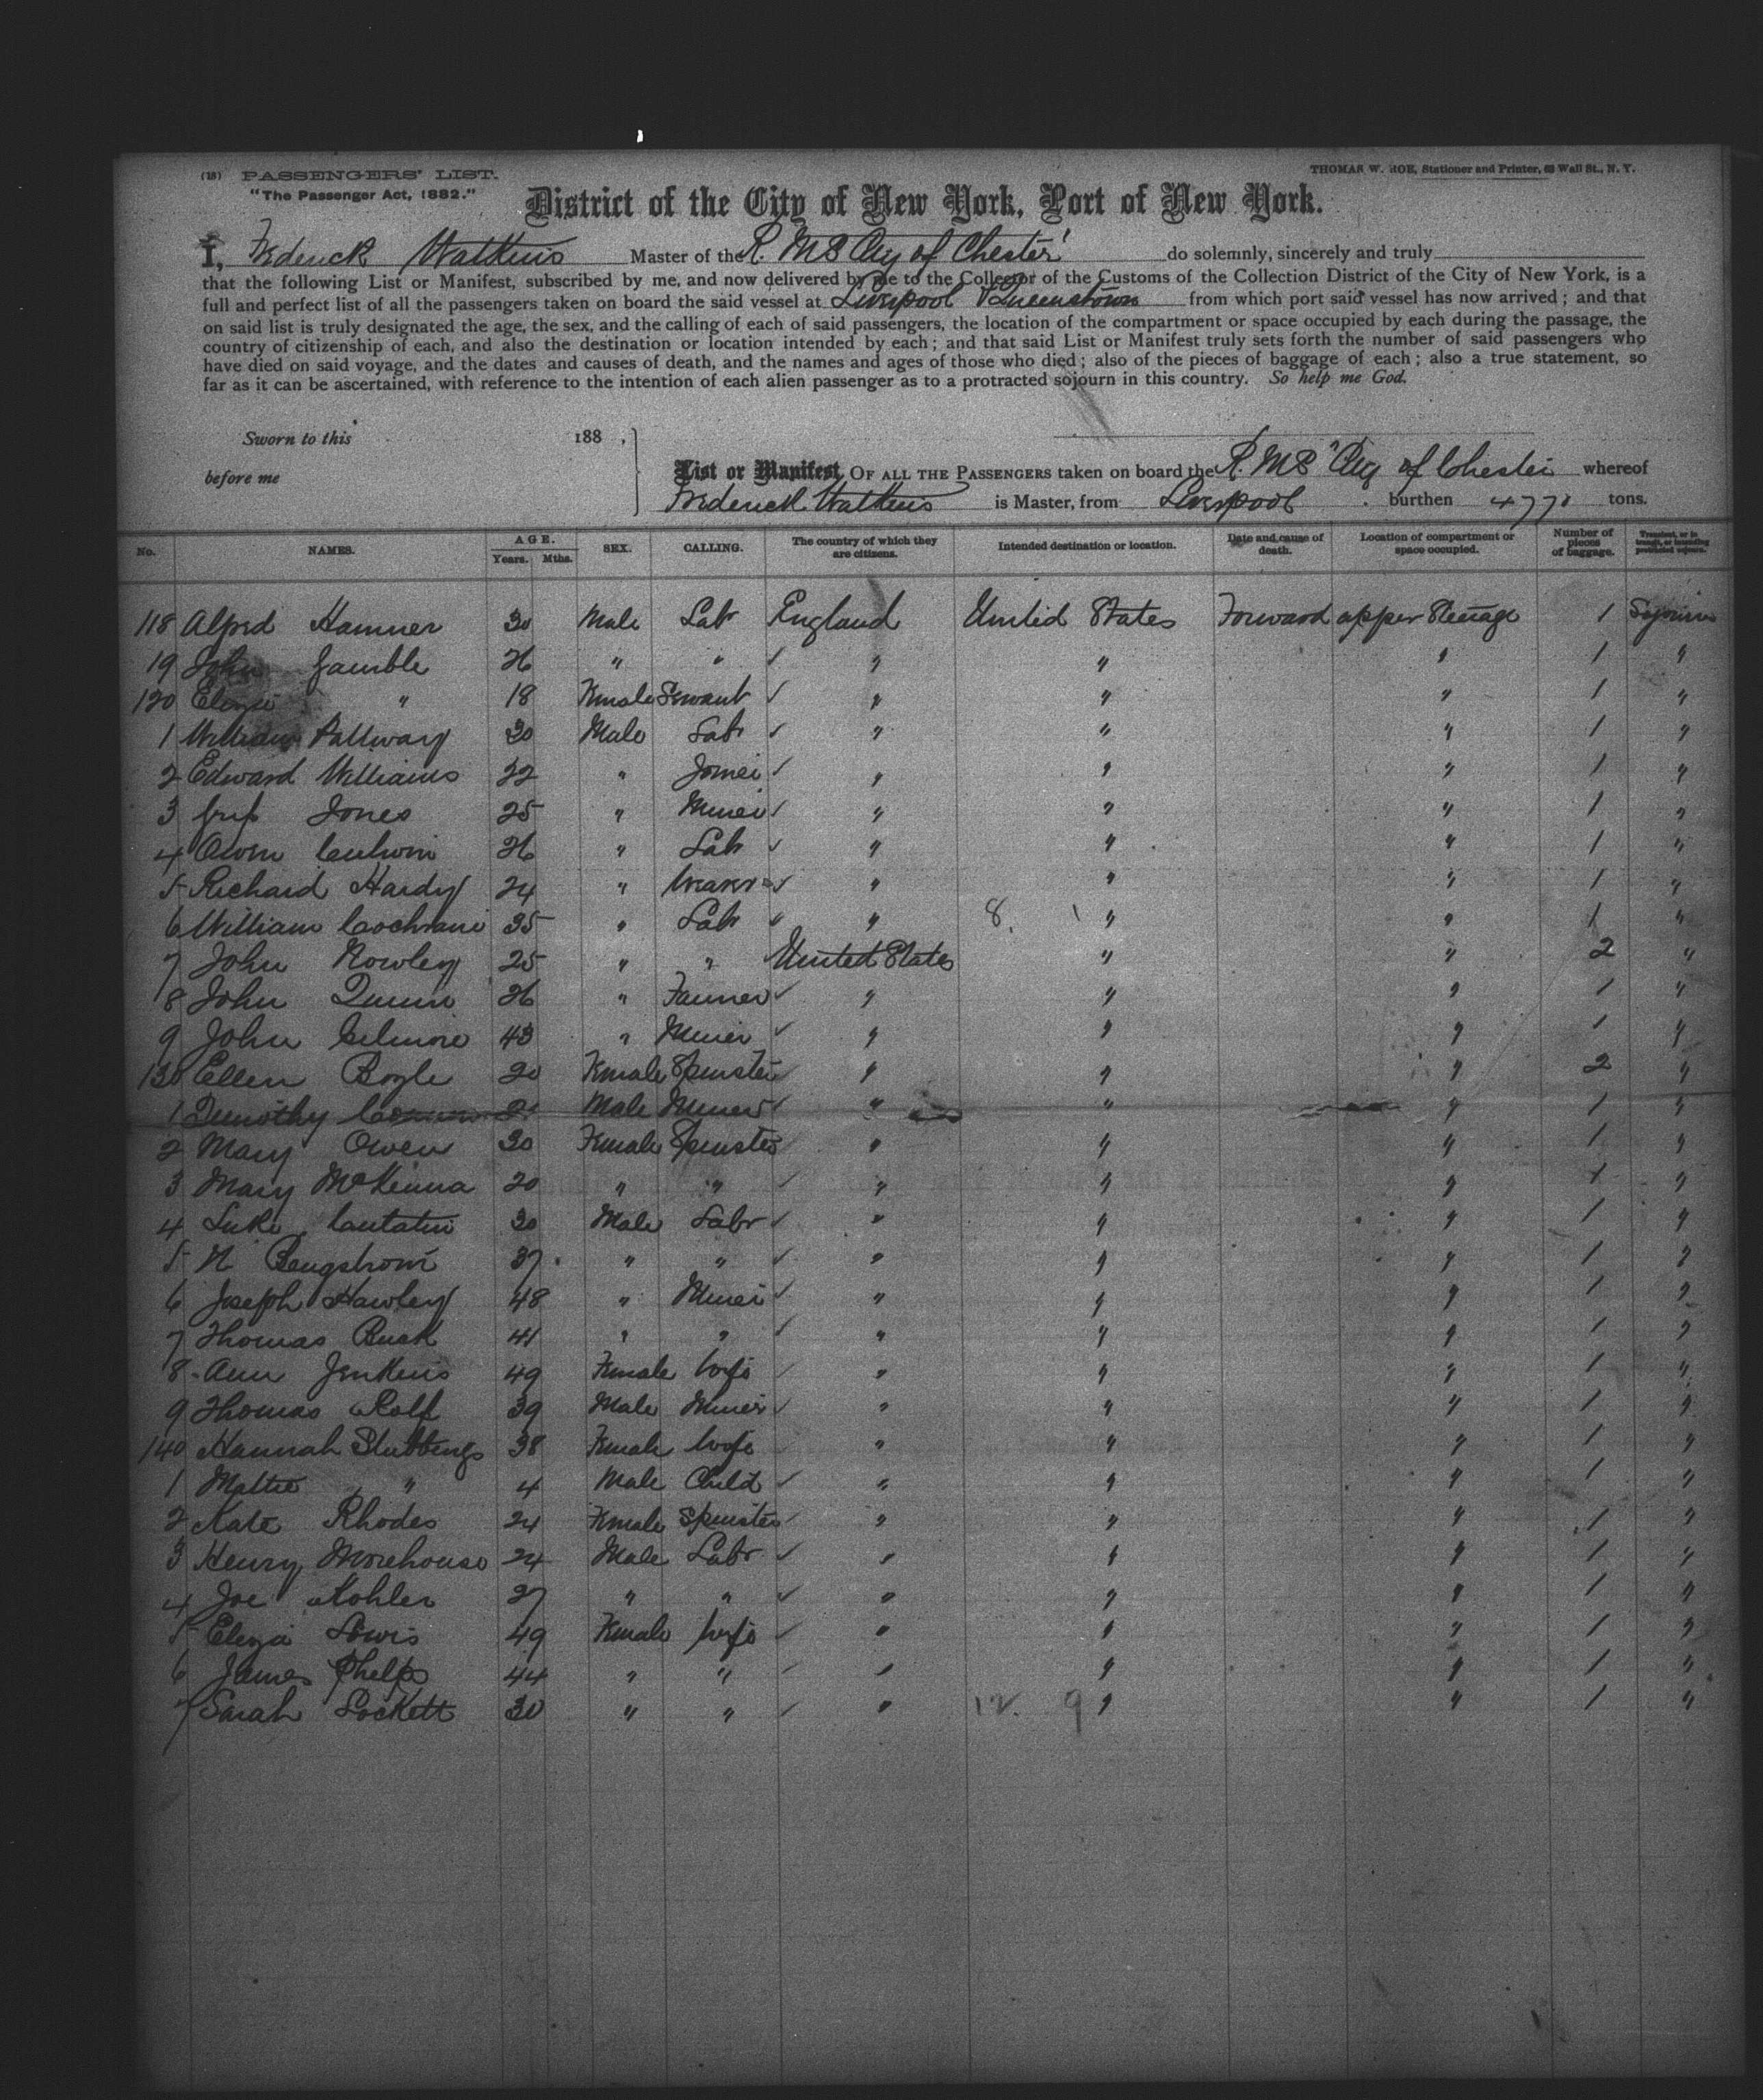 (18) PASSENGERS' LIST. THOMAS W. ROE, Stationer and Printer, 63 Wall St., N. Y.
"The Passenger Act, 1882."
District of the City of New York, Port of New York.
I, Frederick Watkins Master of the R. M S City of Chester do solemnly, sincerely and truly
that the following List or Manifest, subscribed by me, and now delivered by me to the Collector of the Customs of the Collection District of the City of New York, is a
full and perfect list of all the passengers taken on board the said vessel at Liverpool & Queenstown from which port said vessel has now arrived; and that
on said list is truly designated the age, the sex, and the calling of each of said passengers, the location of the compartment or space occupied by each during the passage, the
country of citizenship of each, and also the destination or location intended by each; and that said List or Manifest truly sets forth the number of said passengers who
have died on said voyage, and the dates and causes of death, and the names and ages of those who died; also of the pieces of baggage of each; also a true statement, so
far as it can be ascertained, with reference to the intention of each alien passenger as to a protracted sojourn in this country. So help me God.
Sworn to this 188 ,
before me
List or Manifest OF ALL THE PASSENGERS taken on board the R. M S "City of Chester whereof
Frederick Watkins is Master, from Liverpool burthen 4770 tons.
No. NAMES. AGE. Years. Mths. SEX. CALLING. The country of which they are citizens. Intended destination or location. Date and cause of death. Location of compartment or space occupied. Number of pieces of baggage. Transient, or in transit, or intending protracted sojourn.
118 Alfred Hamner 30 Male Labr England United States Forward upper Steerage 1
19 John Gamble 26 " " " " " 1 "
120 Eliza " 18 Female Servant " " " 1 "
1 William 30 Male Labr " " " 1 "
2 Edward Williams 22 " Joiner " " " 1 "
3 Jones 25 " Miner " " " 1 "
4 Owen 26 " Labr " " " 1 "
5 Richard Hardy 24 " Weaver " " " 1 "
6 William Cochrane 35 " Labr " 8. " " 1 "
7 John Rowley 25 " " United States " " 2 "
8 John Quinn 26 " Farmer " " " 1 "
9 John Gilmore 43 " Miner " " " 1 "
130 Ellen Boyle 20 Female Spinster " " " 2 "
1 Timothy Male Miner " " " 1 "
2 Mary Owen 30 Female Spinster " " " 1 "
3 Mary McKenna 20 " " " " " 1 "
4 Luke 30 Male Labr " " " 1 "
5 N Bengstrom 37 " " " " " 1 "
6 Joseph Hawley 48 " Miner " " " 1 "
7 Thomas Buck 41 " " " " " 1 "
8 Ann Jenkins 49 Female Wife " " " 1 "
9 Thomas Rolf 39 Male Miner " " " 1 "
140 Hannah Stubbings 38 Female Wife " " " 1 "
1 Mattie " 4 Male Child " " " 1 "
2 Kate Rhodes 24 Female Spinster " " " 1 "
3 Henry Morehouse 24 Male Labr " " " 1 "
4 Joe Kohler 27 " " " " " 1 "
5 Eliza Lewis 49 Female Wife " " " 1 "
6 James Phelps 44 " " " " " 1 "
7 Sarah Lockett 30 " " " 12. 9 " " 1 "